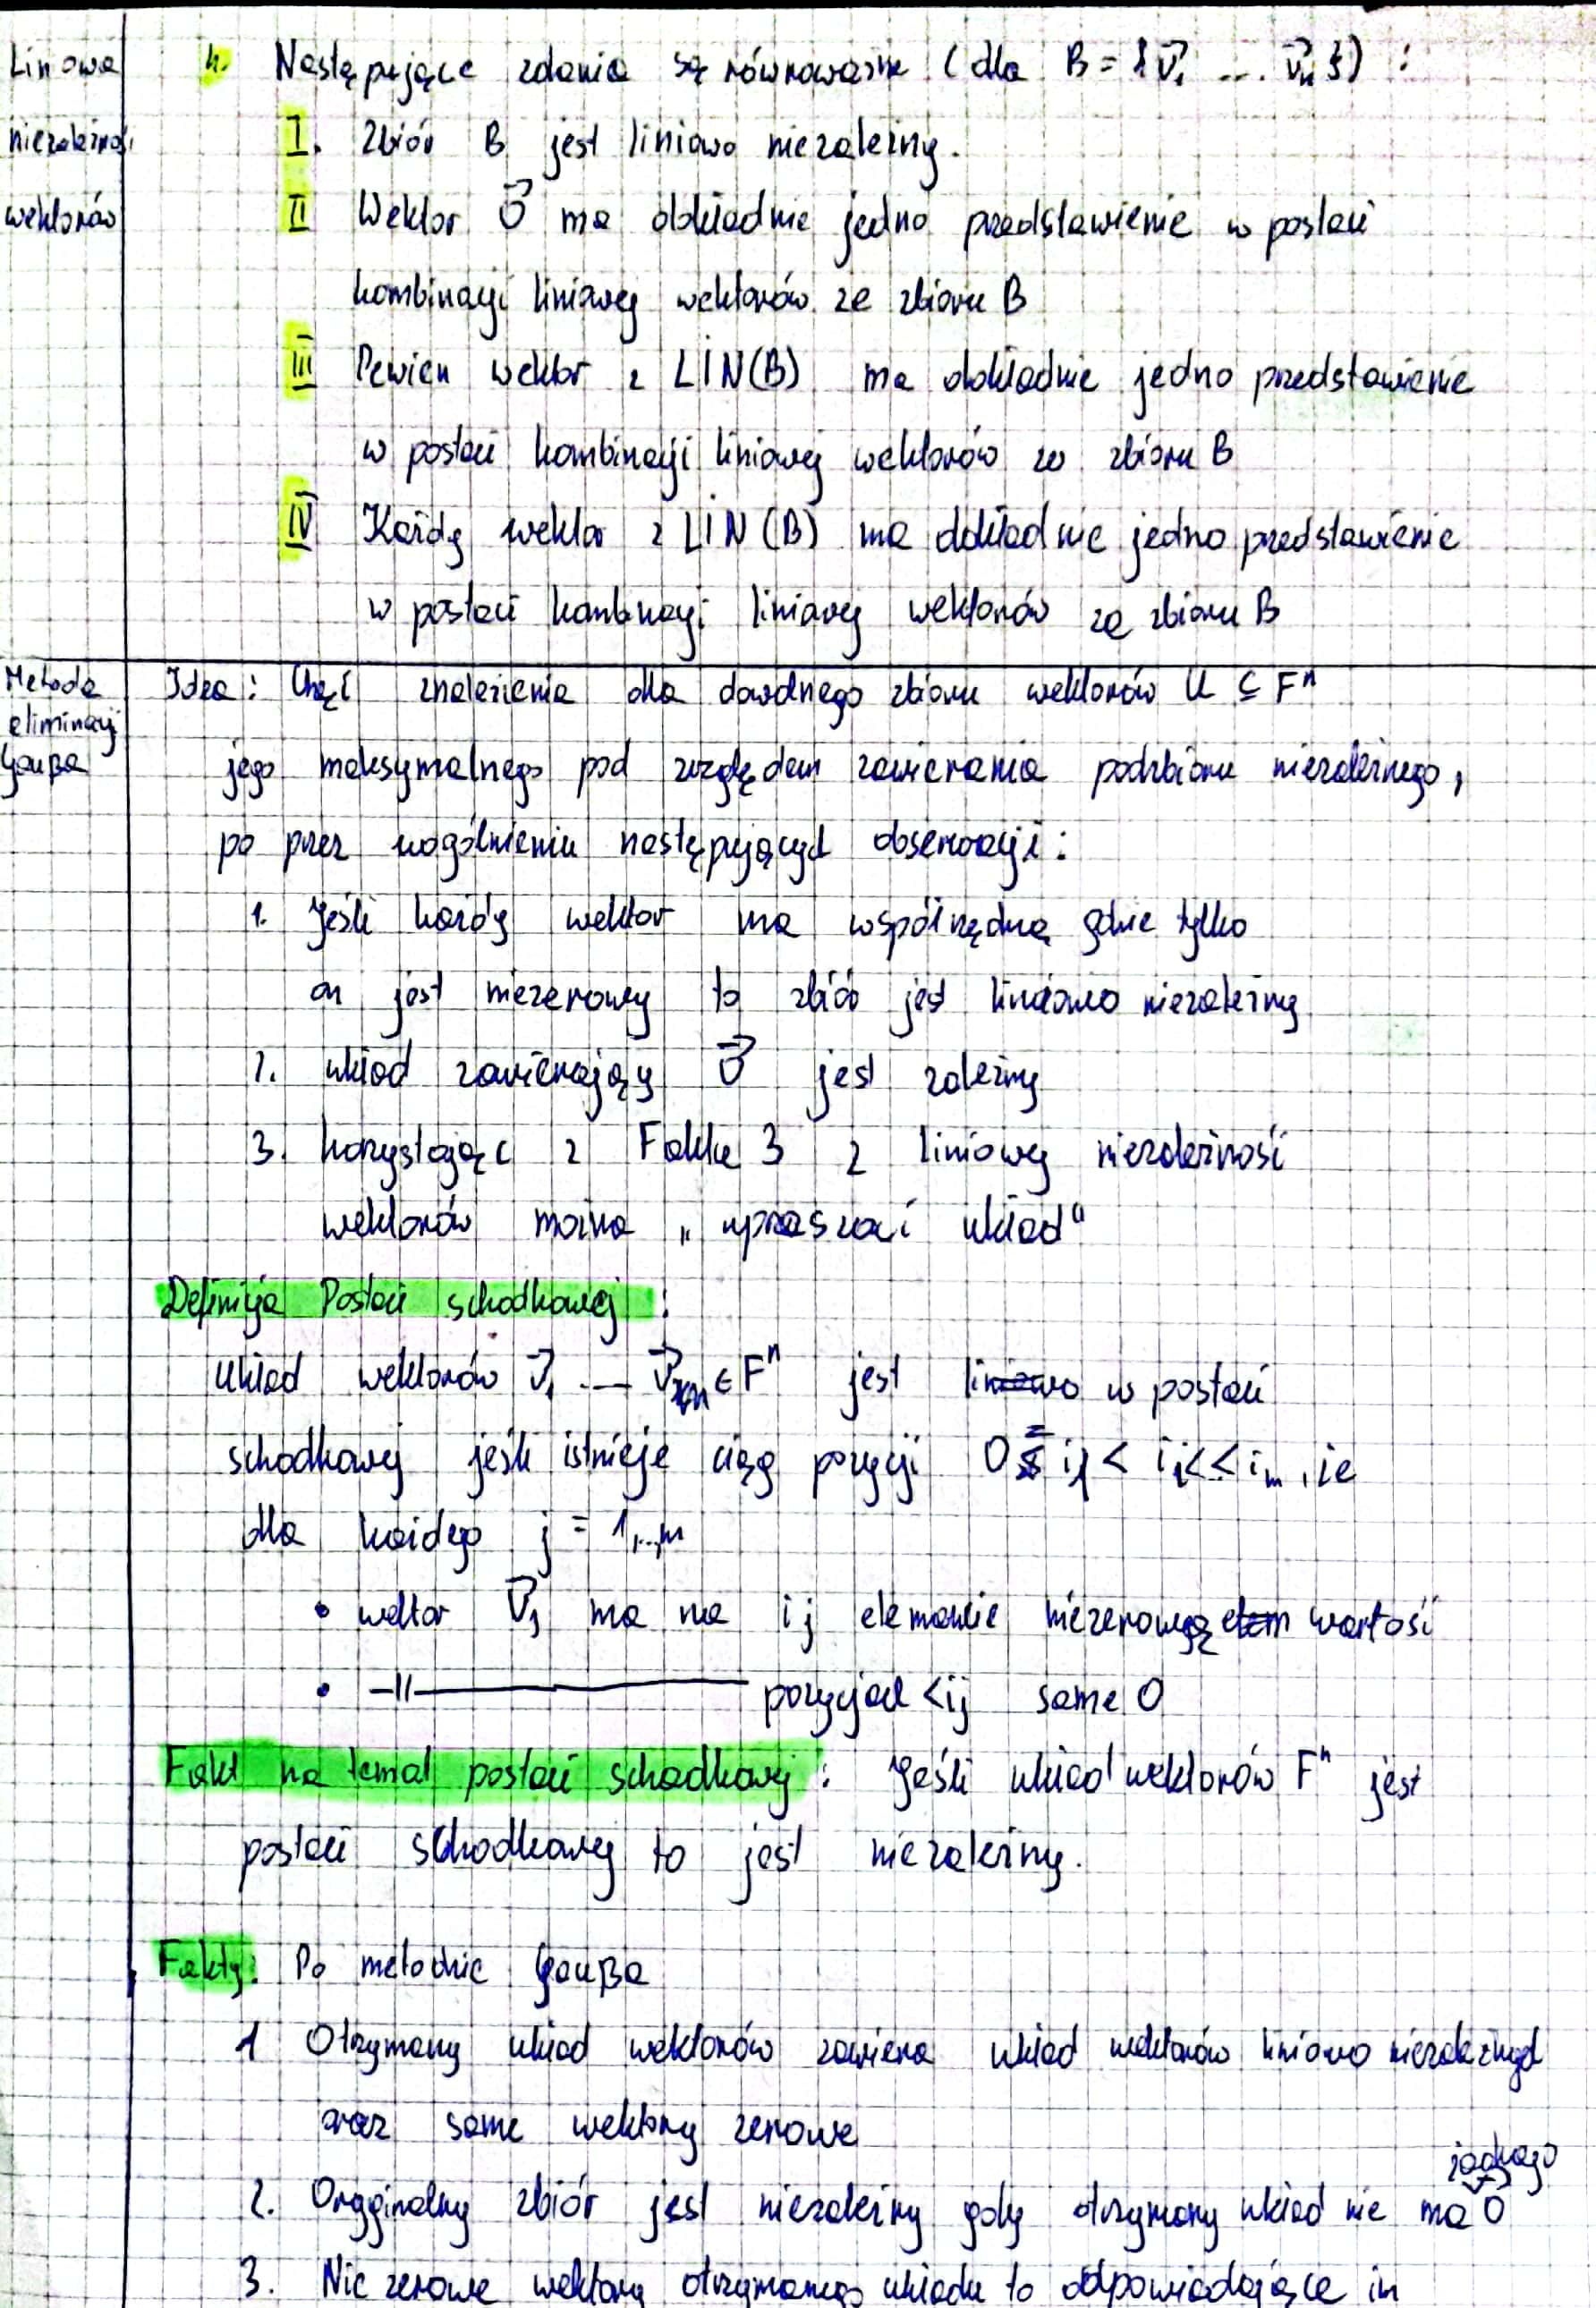 Liniowa
niezależność
wektorów
4. Następujące zdania są równoważne (dla B = {v⃗₁ ... v⃗ₙ}) :
I. Zbiór B jest liniowo niezależny.
II Wektor 0⃗ ma dokładnie jedno przedstawienie w postaci
kombinacji liniowej wektorów ze zbioru B
III Pewien wektor z LIN(B) ma dokładnie jedno przedstawienie
w postaci kombinacji liniowej wektorów ze zbioru B
IV Każdy wektor z LIN(B) ma dokładnie jedno przedstawienie
w postaci kombinacji liniowej wektorów ze zbioru B
Metoda
eliminacji
Gaußa
Idea: Chęć znalezienia dla dowolnego zbioru wektorów U ⊆ Fⁿ
jego maksymalnego pod względem zawierania podzbioru niezależnego,
po przez uogólnieniu następujących obserwacji:
1. Jeśli każdy wektor ma współrzędną gdzie tylko
on jest niezerowy to zbiór jest liniowo niezależny
2. układ zawierający 0⃗ jest zależny
3. korzystając z Faktu 3 z liniowej niezależności
wektorów można „upraszczać układ"
Definicja Postaci schodkowej :
Układ wektorów v⃗₁ ... v⃗ₘ ∈ Fⁿ jest w postaci
schodkowej jeśli istnieje ciąg pozycji 0 ≤ i₁ < i₂ < < iₘ, że
dla każdego j = 1,...,m
• wektor v⃗ⱼ ma na ij elemencie niezerową wartość
• —||— pozycjach <ij same 0
Fakt na temat postaci schodkowej : Jeśli układ wektorów Fⁿ jest
postaci schodkowej to jest niezależny.
Fakty: Po metodzie Gaußa
1 Otrzymany układ wektorów zawiera układ wektorów liniowo niezależnych
oraz same wektory zerowe
2. Oryginalny zbiór jest niezależny gdy otrzymany układ nie ma żadnego 0⃗
3. Nie zerowe wektory otrzymanego układu to odpowiadające im